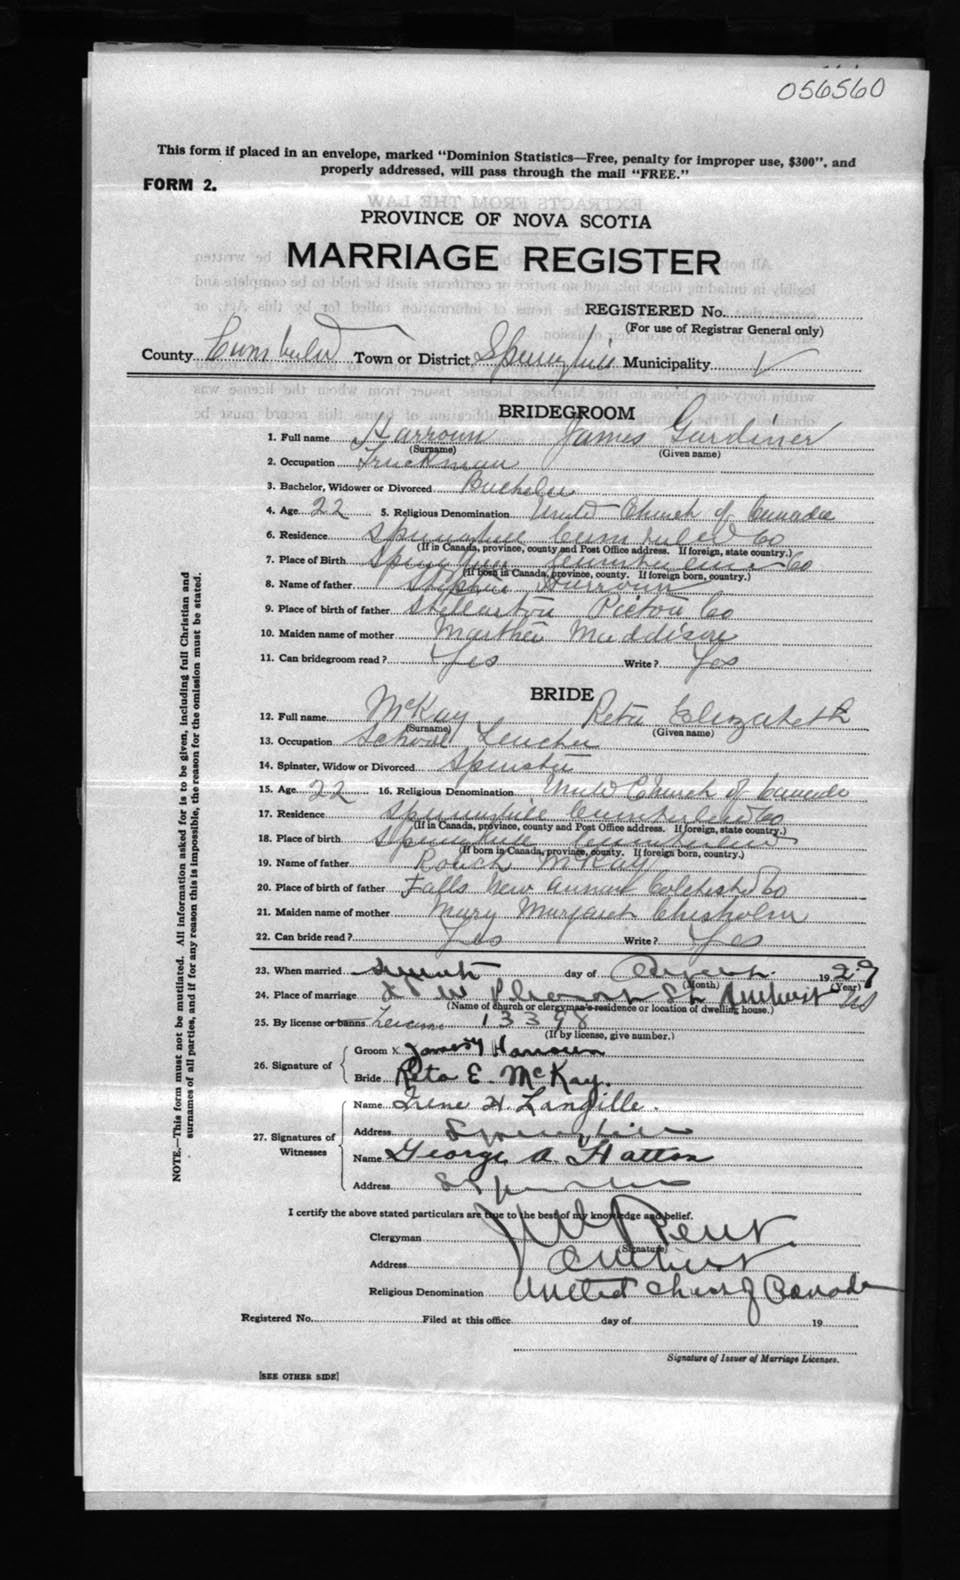 056560
This form if placed in an envelope, marked "Dominion Statistics—Free, penalty for improper use, $300", and
properly addressed, will pass through the mail "FREE."
FORM 2.
PROVINCE OF NOVA SCOTIA
MARRIAGE REGISTER
REGISTERED No.
(For use of Registrar General only)
County Cumberland Town or District Springhill Municipality
BRIDEGROOM
1. Full name Harroun James Gardiner
(Surname) (Given name)
2. Occupation Truckman
3. Bachelor, Widower or Divorced Bachelor
4. Age 22 5. Religious Denomination United Church of Canada
6. Residence Springhill Cumberland Co
(If in Canada, province, county and Post Office address. If foreign, state country.)
7. Place of Birth Springhill Cumberland Co
(If born in Canada, province, county. If foreign born, country.)
8. Name of father Stephen Harroun
9. Place of birth of father Stellarton Pictou Co
10. Maiden name of mother Martha Maddison
11. Can bridegroom read? Yes Write? Yes
BRIDE
12. Full name McKay Reta Elizabeth
(Surname) (Given name)
13. Occupation School Teacher
14. Spinster, Widow or Divorced Spinster
15. Age 22 16. Religious Denomination United Church of Canada
17. Residence Springhill Cumberland Co
(If in Canada, province, county and Post Office address. If foreign, state country.)
18. Place of birth Springhill Cumberland
(If born in Canada, province, county. If foreign born, country.)
19. Name of father McKay
20. Place of birth of father Falls New Annan Colchester Co
21. Maiden name of mother Mary Margaret Chisholm
22. Can bride read? Yes Write? Yes
23. When married day of August 1929
(Month) (Year)
24. Place of marriage St Amherst NS
(Name of church or clergyman's residence or location of dwelling house.)
25. By license or banns License 13398
(If by license, give number.)
26. Signature of
Groom X James Harroun
Bride Reta E. McKay.
27. Signatures of Witnesses
Name Irene H. Langille.
Address Springhill
Name George A. Hatton
Address Springhill
I certify the above stated particulars are true to the best of my knowledge and belief.
Clergyman
(Signature)
Address Amherst
Religious Denomination United Church of Canada
Registered No. Filed at this office day of 19
Signature of Issuer of Marriage Licenses.
[SEE OTHER SIDE]
NOTE.—This form must not be mutilated. All information asked for is to be given, including full Christian and
surnames of all parties, and if for any reason this is impossible, the reason for the omission must be stated.